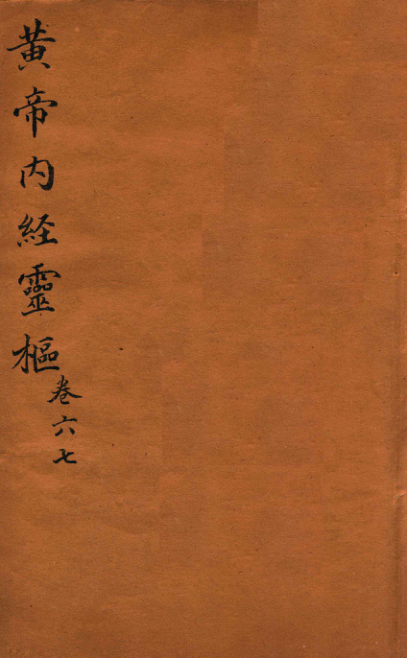 黄帝内経靈樞
卷六七